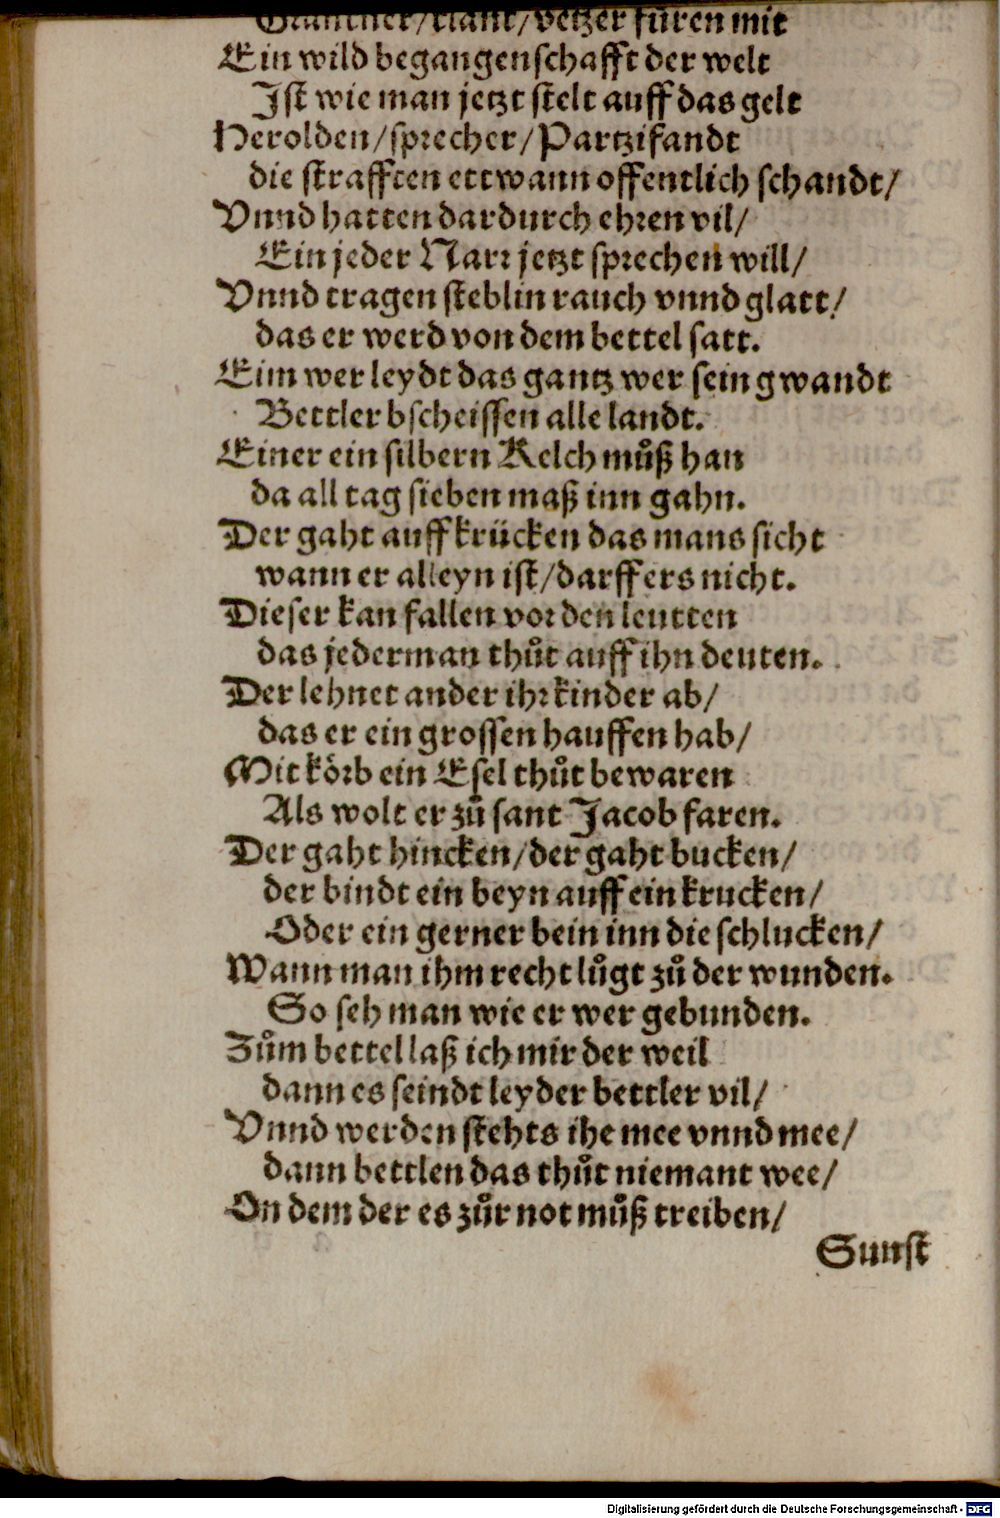 füren mit
Ein wild begangenschafft der welt
Ist wie man jetzt stelt auff das gelt
Herolden/sprecher/Partzifandt
die strafften ettwann offentlich schandt/
Vnnd hatten dardurch ehren vil/
Ein jeder Narr jetzt sprechen will/
Vnnd tragen steblin rauch vnnd glatt/
das er werd von dem bettel satt.
Eim wer leydt das gantz wer sein gwandt
Bettler bscheissen alle landt.
Einer ein silbern Kelch můß han
da all tag sieben maß inn gahn.
Der gaht auff krücken das mans sicht
wann er alleyn ist/darff ers nicht.
Dieser kan fallen vor den leutten
das jederman thůt auff ihn deuten.
Der lehnet ander ihr kinder ab/
das er ein grossen hauffen hab/
Mit körb ein Esel thůt bewaren
Als wolt er zů sant Jacob faren.
Der gaht hincken/der gaht bucken/
der bindt ein beyn auff ein krucken/
Oder ein gerner bein inn die schlucken/
Wann man ihm recht lůgt zů der wunden.
So seh man wie er wer gebunden.
Zům bettel laß ich mir der weil
dann es seindt leyder bettler vil/
Vnnd werden stehts ihe mee vnnd mee/
dann bettlen das thůt niemant wee/
On dem der es zůr not můß treiben/
Sunst
Digitalisierung gefördert durch die Deutsche Forschungsgemeinschaft - DFG